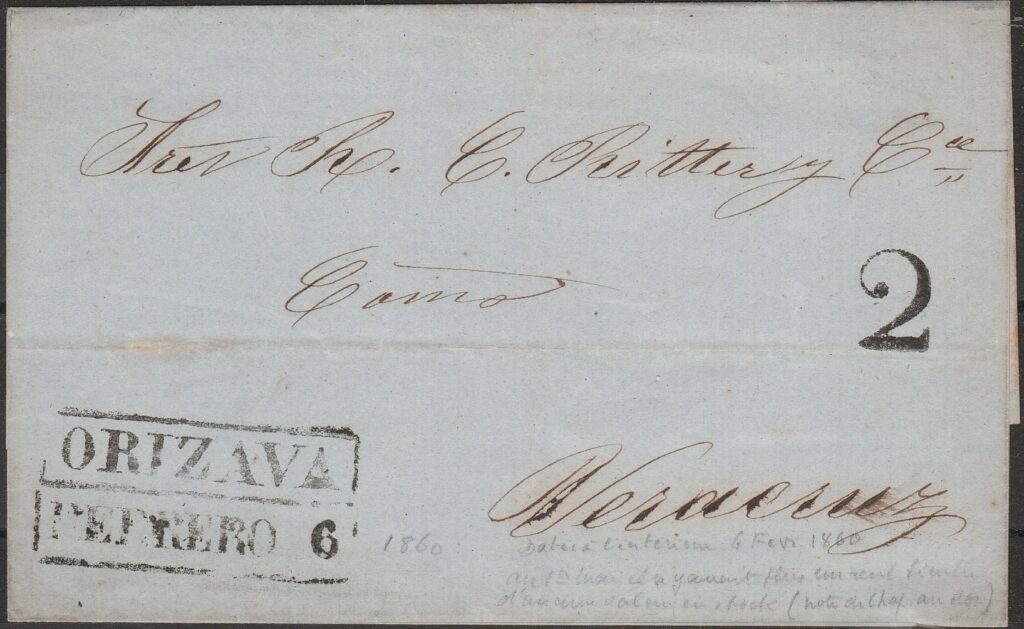 Sres R. C. Ritter y Ca
Como
2
ORIZAVA
FEBRERO 6
Veracruz
1860
Daté à l'intérieur 6 Fevr 1860
au 1er Mai il n'y avait plus un seul timbre
d'aucune valeur en stock (note de Chap. au dos)